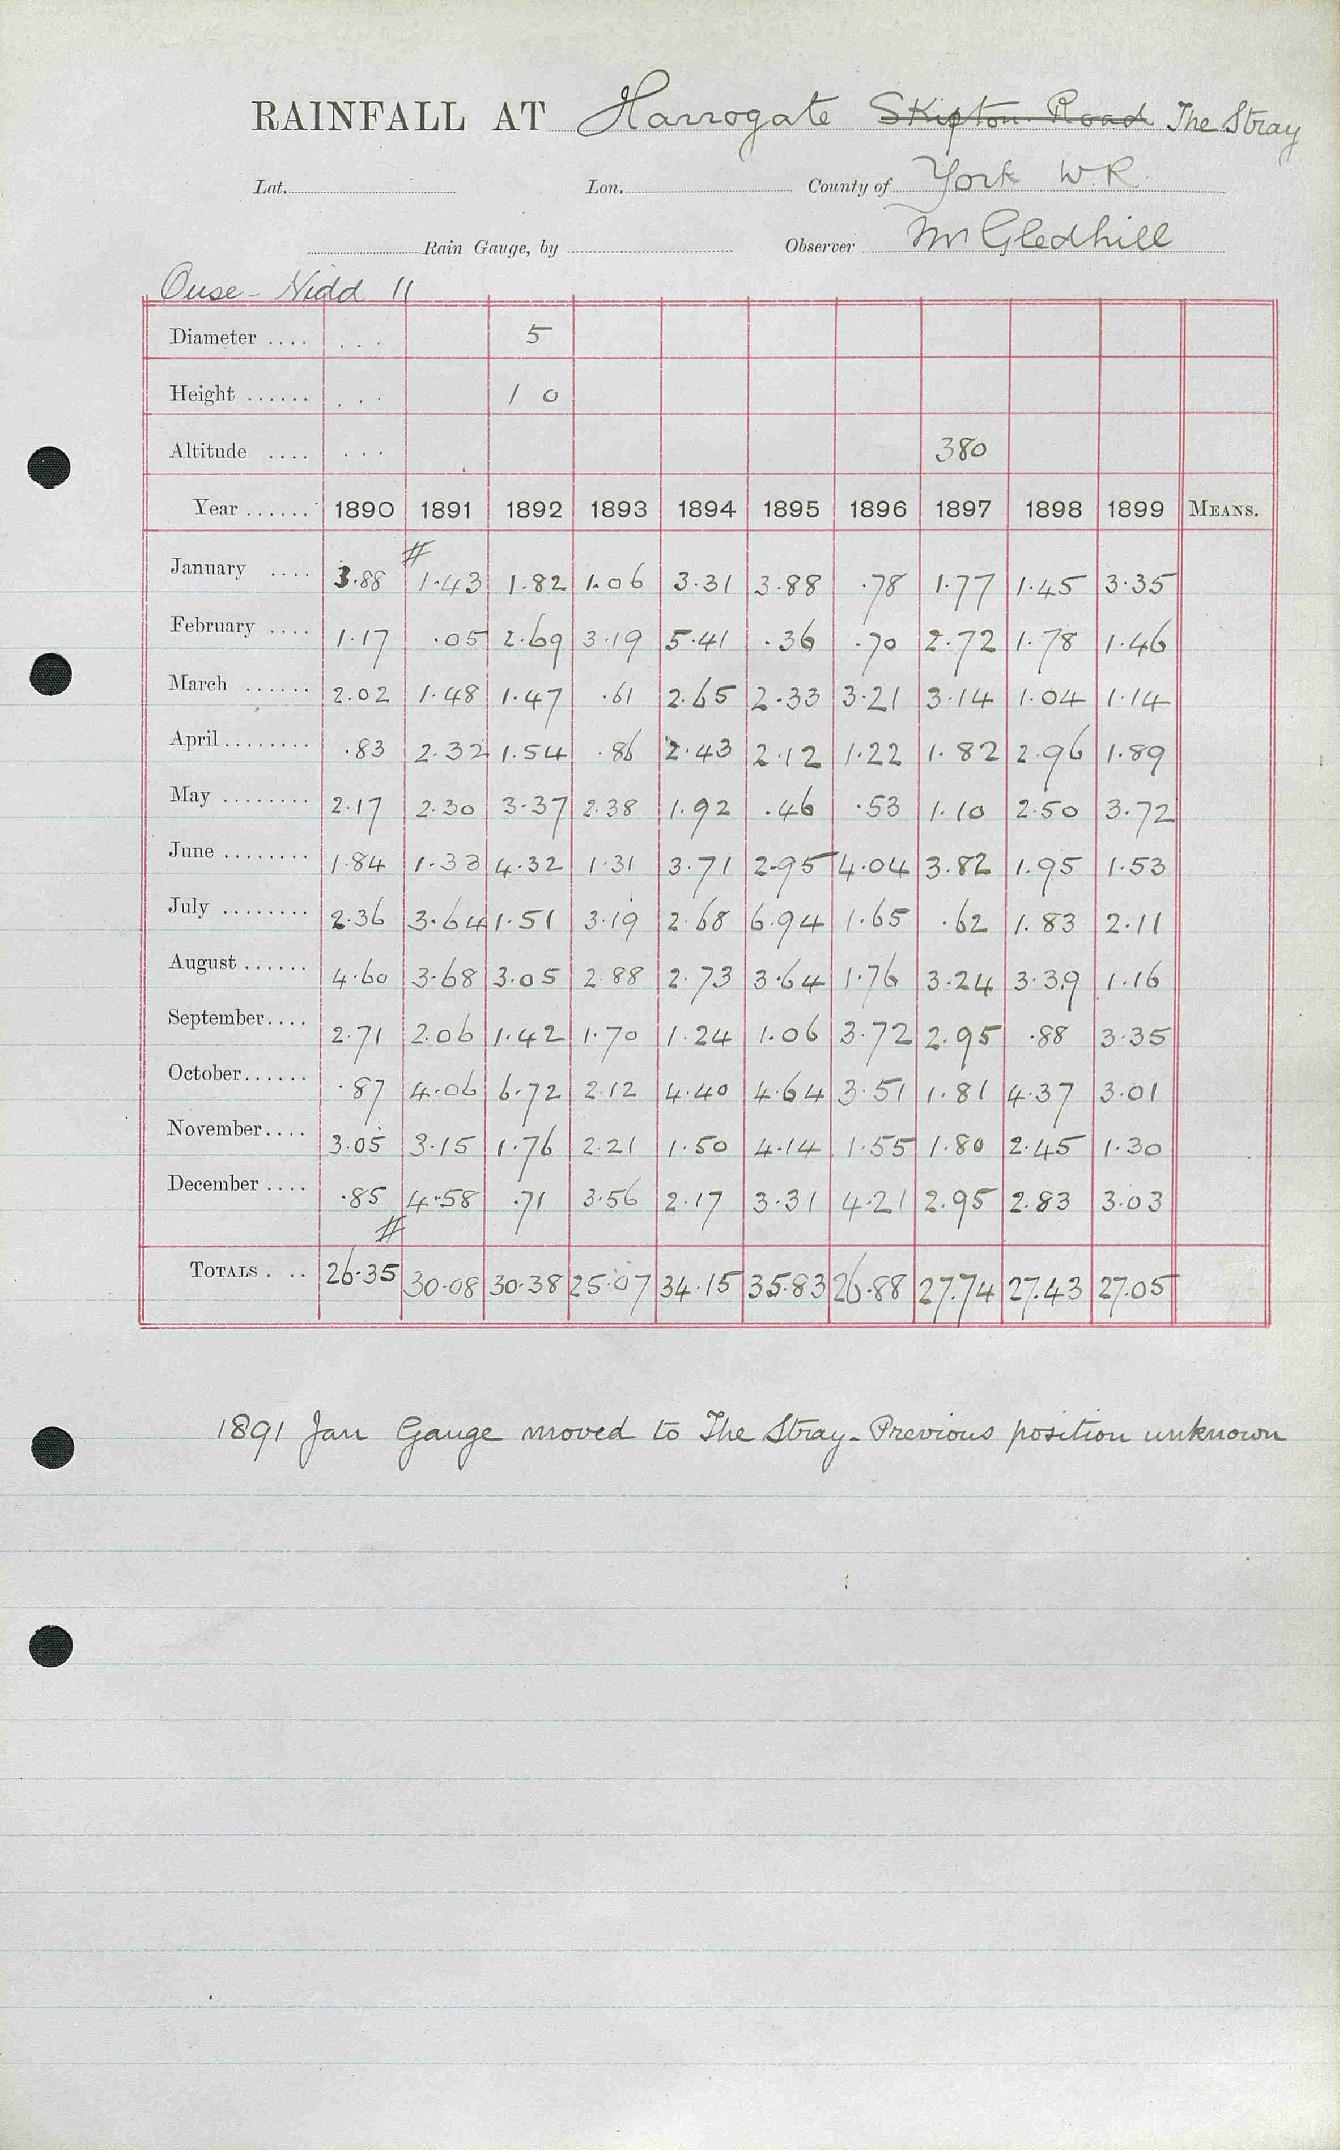 RAINFALL AT Harrogate Skipton Road The Stray
Lat. Lon. County of York W.R.
Rain Gauge, by Observer Mr Gledhill
Ouse - Nidd 11
Diameter .... ... 5
Height ...... ... 1 0
Altitude .... ... 380
Year ...... 1890 1891 1892 1893 1894 1895 1896 1897 1898 1899 MEANS.
#
January .... 3.88 1.43 1.82 1.06 3.31 3.88 .78 1.77 1.45 3.35
February .... 1.17 .05 2.69 3.19 5.41 .36 .70 2.72 1.78 1.46
March ...... 2.02 1.48 1.47 .61 2.65 2.33 3.21 3.14 1.04 1.14
April ........ .83 2.32 1.54 .86 2.43 2.12 1.22 1.82 2.96 1.89
May ........ 2.17 2.30 3.37 2.38 1.92 .46 .53 1.10 2.50 3.72
June ........ 1.84 1.33 4.32 1.31 3.71 2.95 4.04 3.82 1.95 1.53
July ........ 2.36 3.64 1.51 3.19 2.68 6.94 1.65 .62 1.83 2.11
August ...... 4.60 3.68 3.05 2.88 2.73 3.64 1.76 3.24 3.39 1.16
September.... 2.71 2.06 1.42 1.70 1.24 1.06 3.72 2.95 .88 3.35
October...... .87 4.06 6.72 2.12 4.40 4.64 3.51 1.81 4.37 3.01
November.... 3.05 3.15 1.76 2.21 1.50 4.14 1.55 1.80 2.45 1.30
December .... .85 4.58 .71 3.56 2.17 3.31 4.21 2.95 2.83 3.03
#
TOTALS . .. 26.35 30.08 30.38 25.07 34.15 35.83 26.88 27.74 27.43 27.05
1891 Jan Gauge moved to The Stray - Previous position unknown